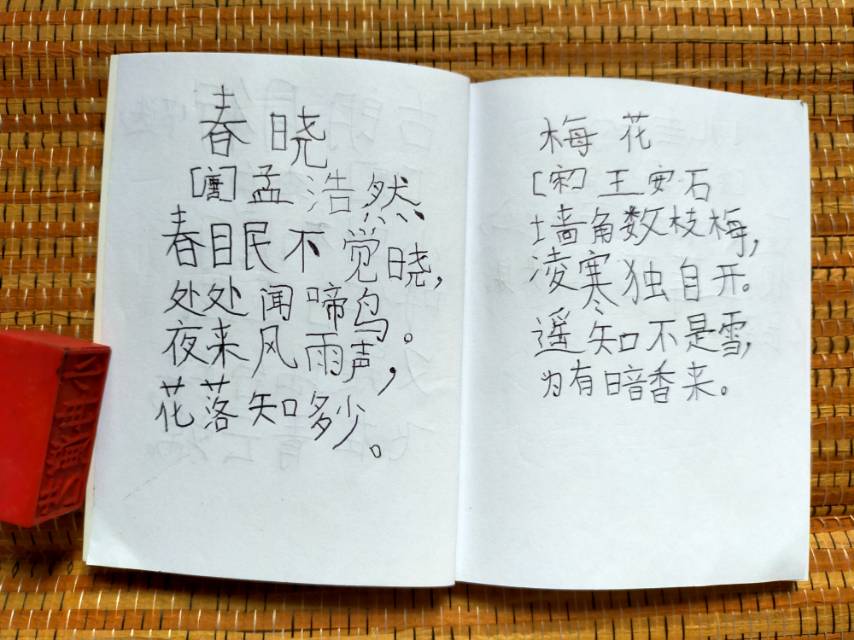 春晓
[唐]孟浩然
春目民不觉晓，
处处闻啼鸟。
夜来风雨声，
花落知多少。
梅花
[宋]王安石
墙角数枝梅，
凌寒独自开。
遥知不是雪，
为有暗香来。